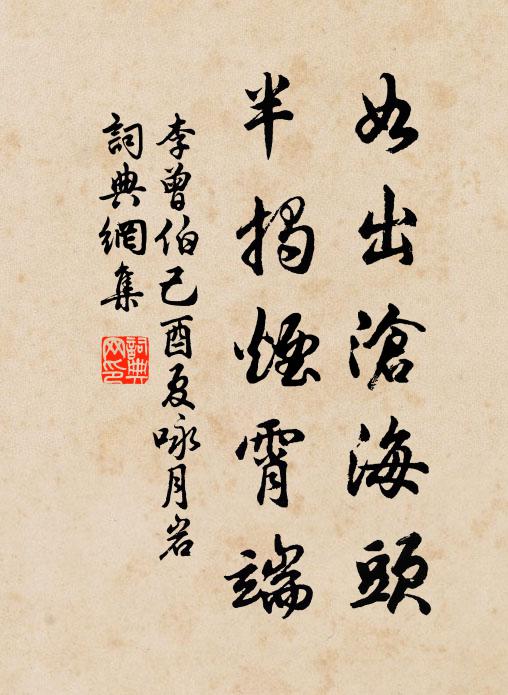 如出滄海頭
半揭煙霄端
李曾伯己酉夏咏月岩
詞典網集
詞典網印